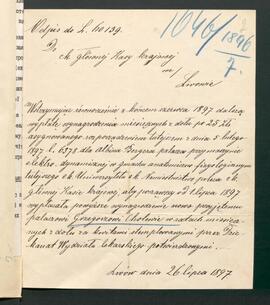 Odpis do L. 110139.
1046/1896
7.
Do
ck. głównej Kasy krajowej
we
Lwowie
Wstrzymując równocześnie z końcem czerwca 1897 dalszą
wypłatę wynagrodzenia miesięcznych z dołu po 25 zł.
asygnowanego rozporządzeniem tutejszem z dnia 5 lutego
1897 L. 6378 dla Albina palacza przy maszynie
elektro dynamicznej w gmachu anatomiczno fizyologicznym
tutejszego ck. Uniwersytetu ck. Namiestnictwo poleca ck.
głównej Kasie krajowej aby począwszy od 1 lipca 1897
wypłacała powyższe wynagrodzenie nowo przyjętemu
palaczowi Grzegorzowi Cholewie w ratach miesięcz-
nych z dołu za kwitami stemplowanymi przez Dzie-
kanat Wydziału lekarskiego potwierdzonymi.
Lwów dnia 26 lipca 1897